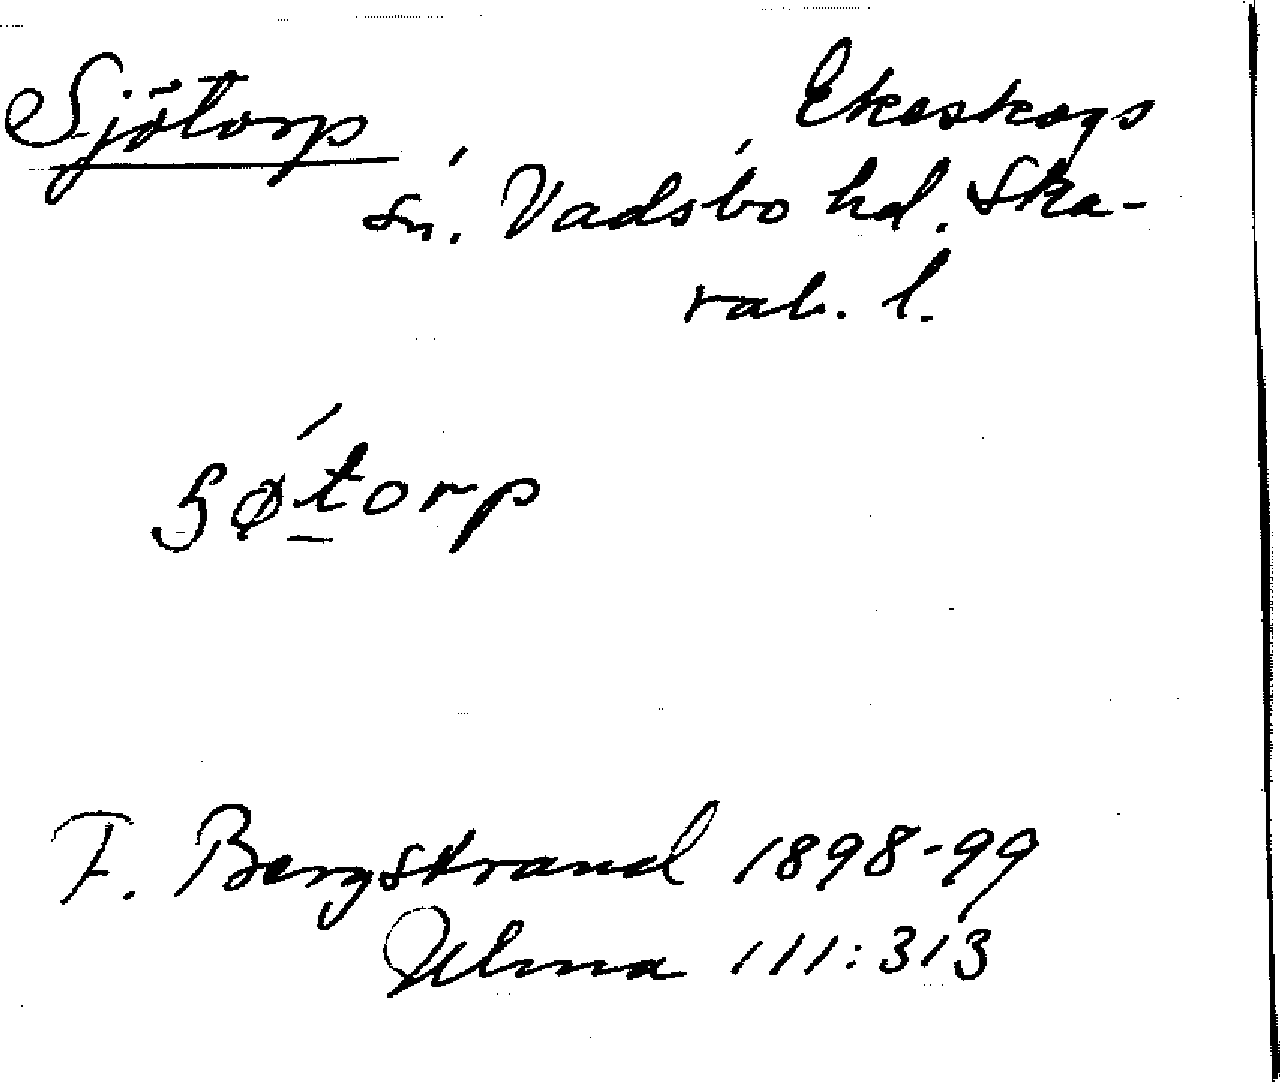 Sjötorp Ekeskogs
sn. Vadsbo hd. Ska-
rab. l.
ʂǿt̲orp
F. Bergstrand 1898-99
Ulma 111:313